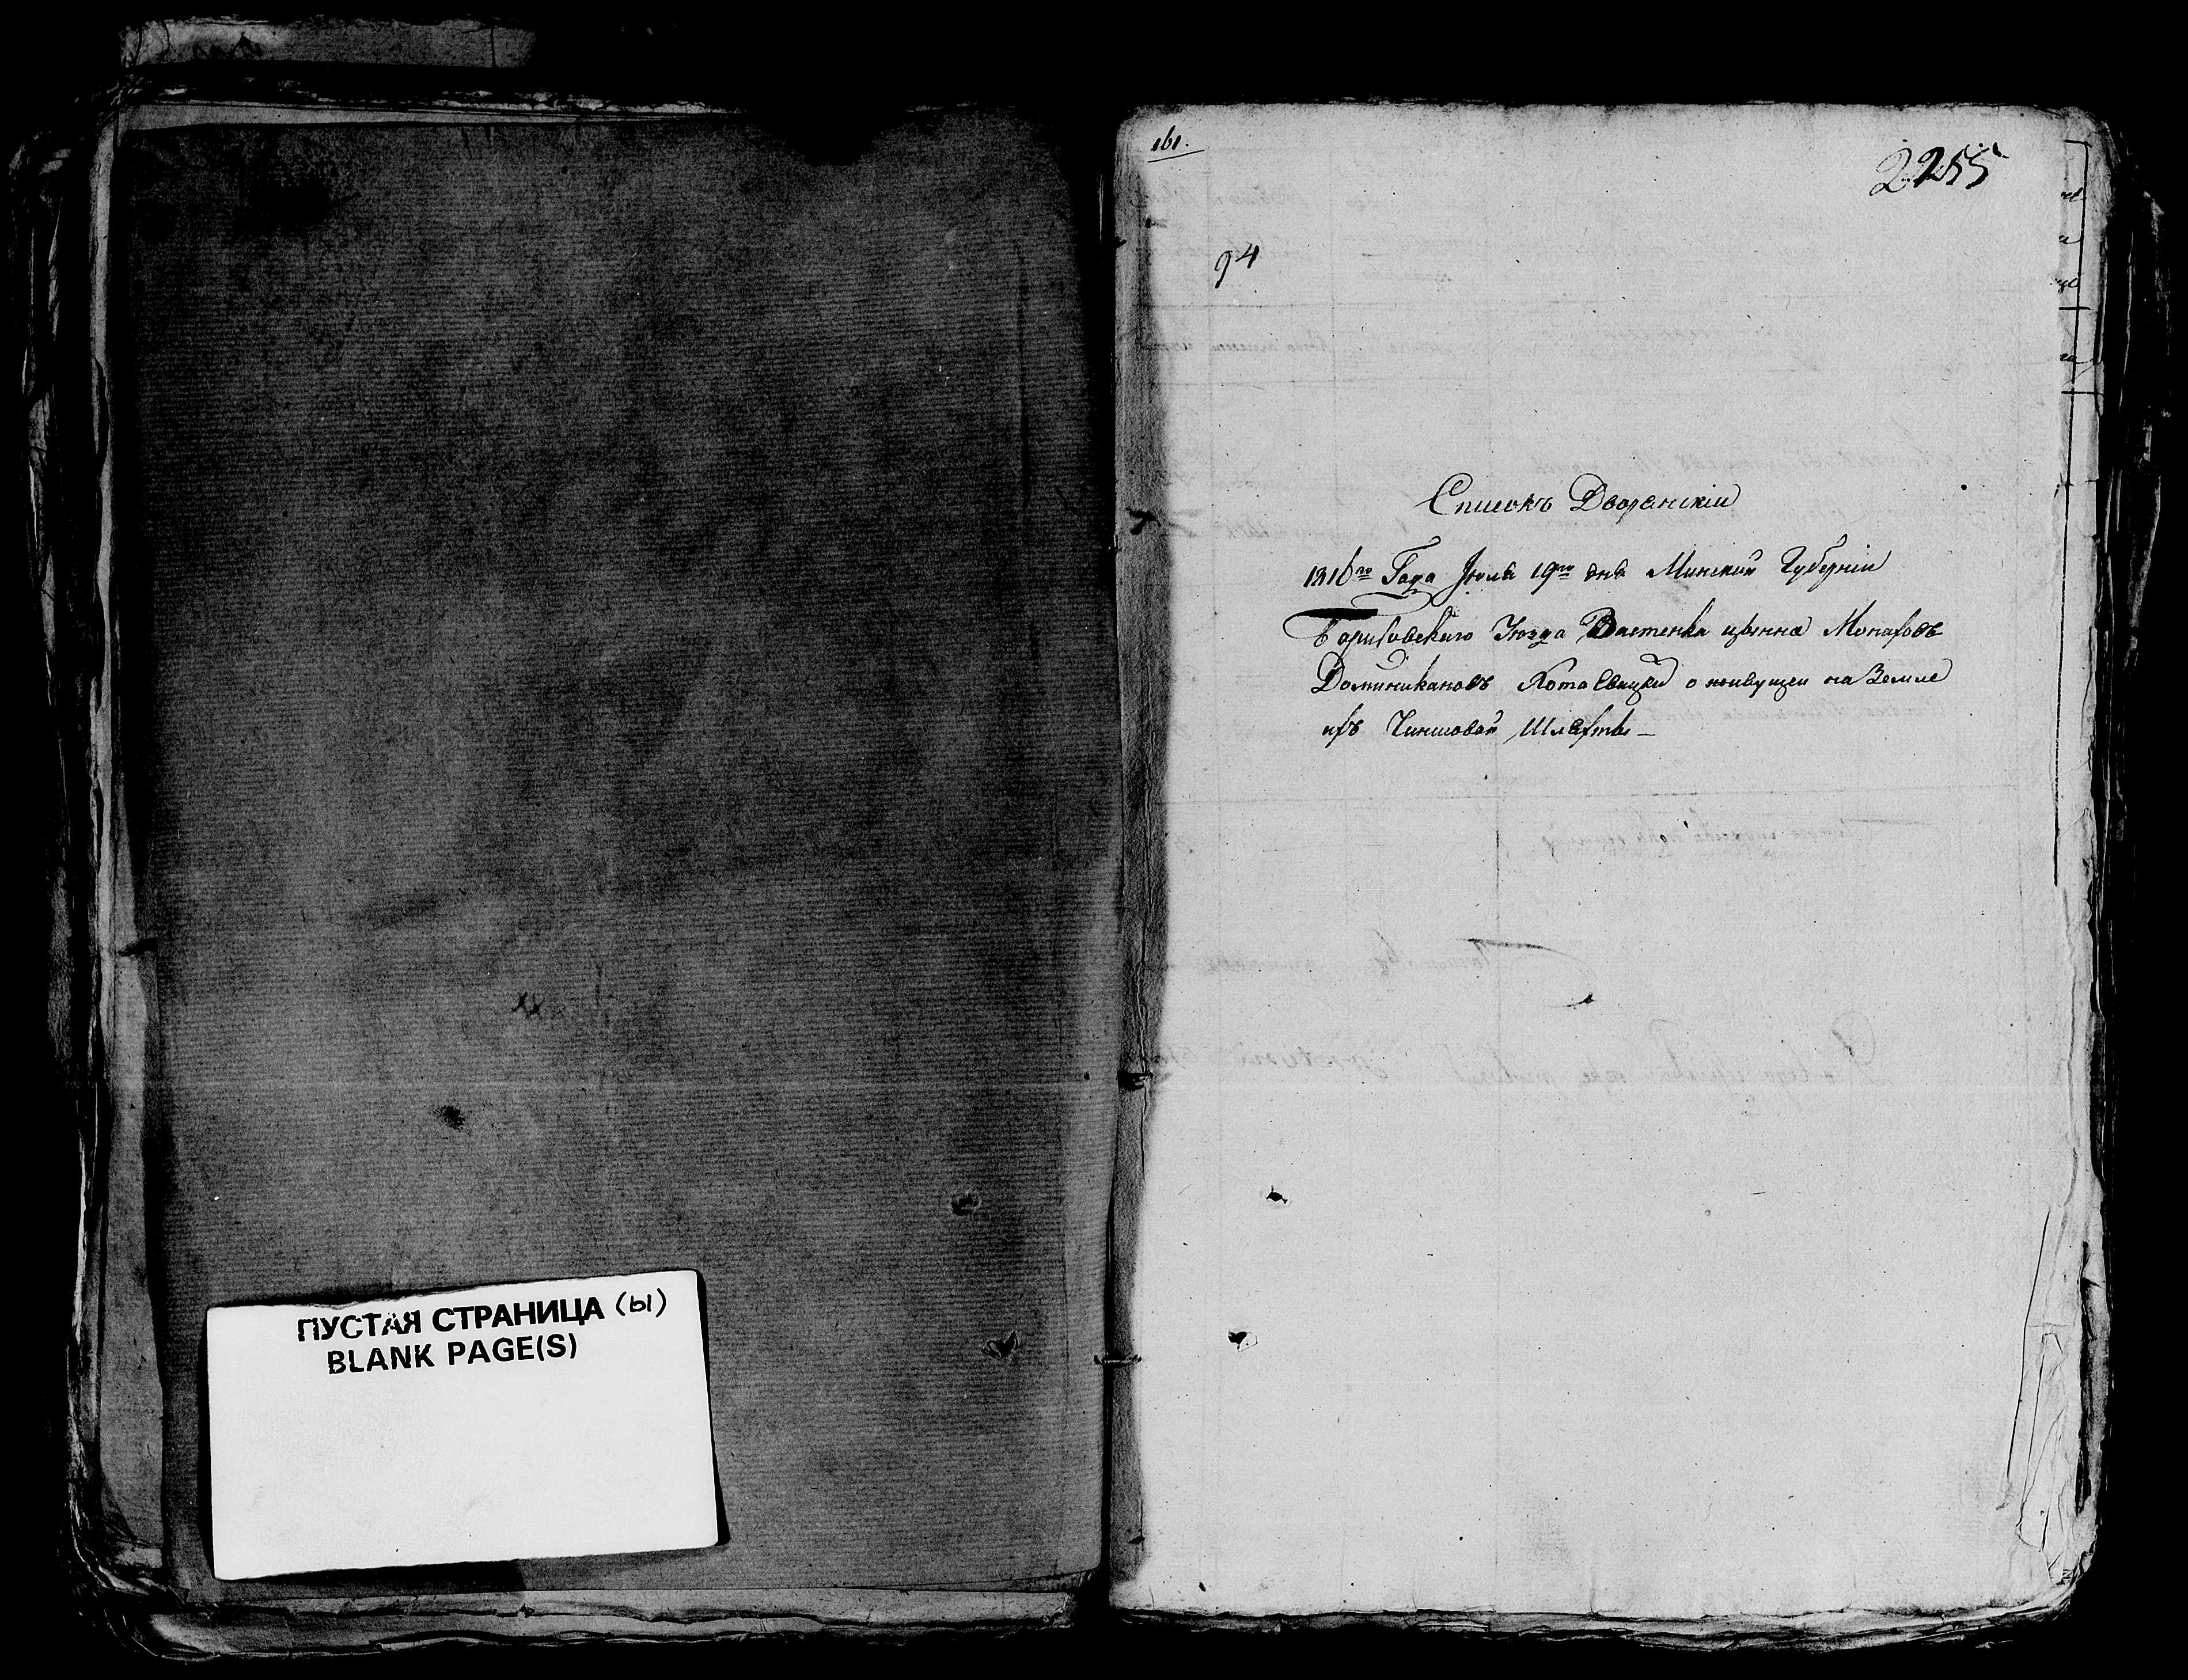 ПУСТАЯ СТРАНИЦА (Ы)
BLANK PAGE(S)
161.
2255
94
Списокъ Дворенскіи
1816го Года Июля 19го дня Минской Губерніи
Борисовского Уезда Монаховъ
Доминикановъ о живущеи на Земле
изъ Чиншовой Шляхты —